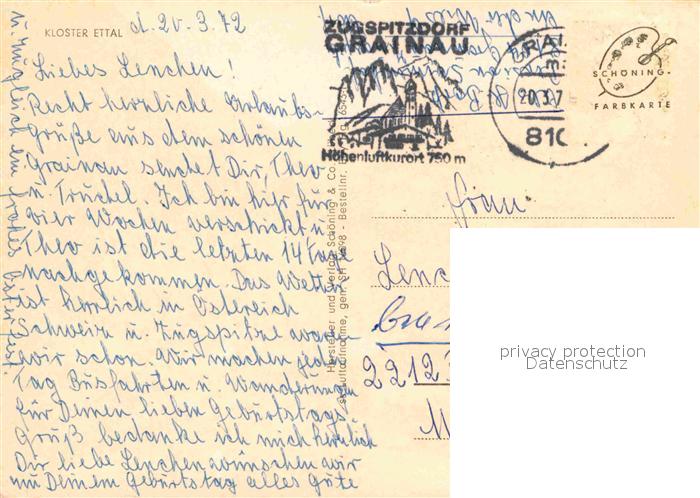 KLOSTER ETTAL
d. 20.3.72
Liebes Lenchen!
Recht herrliche Urlaubs-
grüße aus dem schönen
Grainau sendet Dir, Theo
u. Truchel. Ich bin hier für
vier Wochen verschickt u.
Theo ist die letzten 14 Tage
nachgekommen. Das Wetter
ist herrlich in Östereich
Schweiz u. Zugspitze waren
wir schon. Wir machen jeden
Tag Busfahrten u. Wanderungen
Für Deinen lieben Geburtstags
Gruß bedanke ich mich herzlich
Dir liebe Lenchen wünschen wir
zu Deinem Geburtstag alles Gute
u. zugleich ein frohes Osterfest.
ZUGSPITZDORF
GRAINAU
Höhenluftkurort 750 m
20.3.7
810
SCHÖNING-
FARBKARTE
Hersteller und Verlag Schöning & Co
Bestellnr.
Frau
Lenc
2212
M
privacy protection
Datenschutz